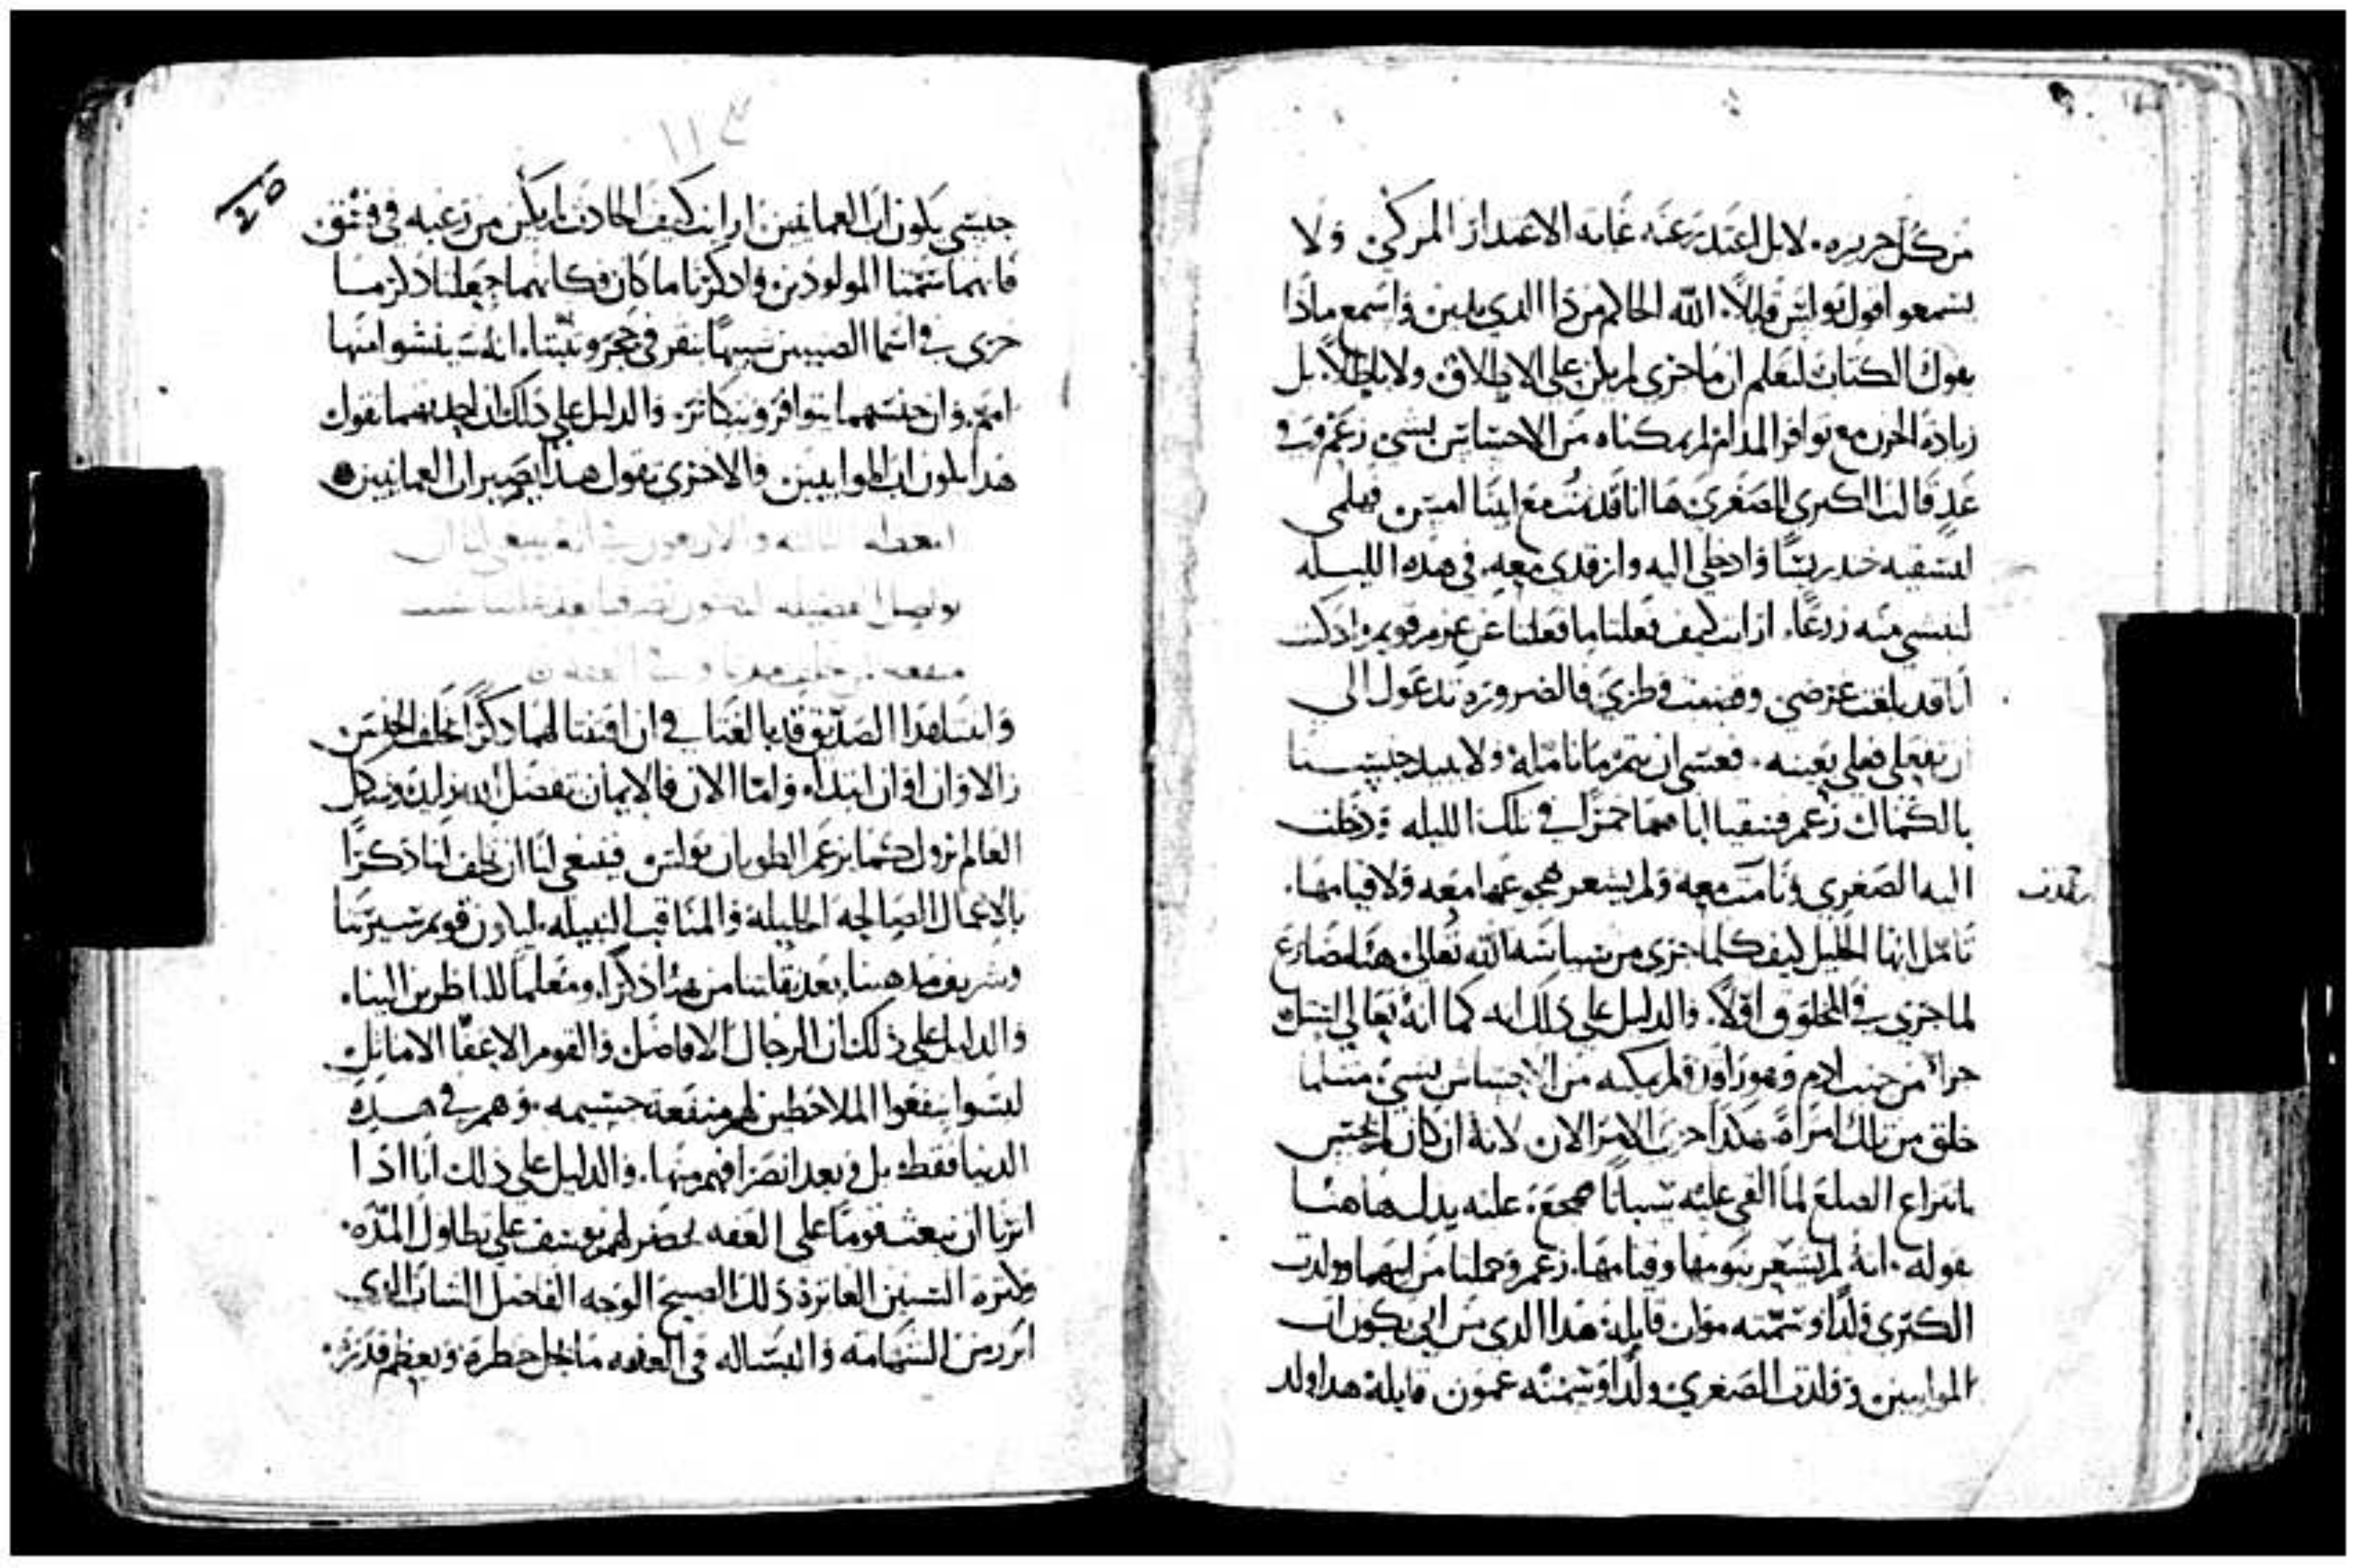 من كل جريره. لا بل اعتد رعنه غايه الاعتدار المركي ولا
نسمعو اقول بولس قايلاً. الله الحاكم من ذا الدي يدين واسمع ماذا
يقول الكتاب لتعلم ان ما جرى لم يكن على الاطلاق ولا باطلاً. بل
زياده الحزن مع توافر المدام لم يمكناه من الاحساس بشي زعم وفي
غد قالت الكبرى للصغرى ها انا قد نمت مع ابينا امس فهلمي
لنسقيه خندريسًا وادخلي اليه وارقدي معه في هذه الليله
لننشي منه زرعًا. ارايت كيف فعلتا ما فعلتا عن عزم قويم واد كنت
انا قد بلغت غرضي وقضيت وطري فالضروره تدعول الى
ان تفعلي فعلي بعينه. فعسى ان يتم ما نامله ولا يبيد جنسنا
بالكمال زعم فسقيا اباهما خمرًا في تلك الليله ودخلت
اليه الصغرى ونامت معه ولم يشعر هجوعها معه ولا قيامها.
رقدت
تامل ايها الخليل كيف كلما جرى من سياسة الله تعالى هنا مضارع
لما جرى في المخلوق اولاً. والدليل على ذلك انه كما انه تعالى استل
جزاً من جنب ادم وهو راقد ولم يمكنه من الاحساس بشي منتلما
خلق من تلك امراة هكدا جرى الامر الان لانه ان كان لم يحس
بانتزاع الضلع لما القى عليه سباتاً
بقوله. انه لم يشعر بنومها وقيامها. زعم وحملتا من ابيهما وولدت
الكبرى ولدًا وسمته مواب قايلة هدا الدي من ابي يكون اب
الموابيين وولدت الصغرى ولدًا وسمته عمون قايلة هدا ولد
١١٣
٤٥
جنسي يكون اب العمانيين ارايت كيف الحادث لم يكن من رغبه في فسق
فانهما سمتا المولودين واد كرتا ما كان فكانهما جعلتا ذكر ما
جرى في اسما الصبيين شبيهًا بنقر في حجر ونبتتا. انه سينشوا منها
امم. وان جنسهما يتوافر ويتكاثر. والدليل على ذلك ان احديهما تقول
هدا يكون اب الموابيين والاخرى تقول هدا يصير اب العمانيين
العظه الثالثه والاربعون في انه ينبغي لنا ان
نواصل الفضيله
وانسا هدا الصديق قد بالغتا في ان اقتنتا لهما ذكرًا بخلف الجنس
في الاوان اوان ابتداه واما الان فالايمان بفضل الله يزايد وشكل
العالم يزول كما يزعم الطوبان بولس فينبغي لنا ان نخلف لنا ذكرًا
بالاعمال الصالحه الجليله والمناقب النبيله. ليكون قويم سيرتنا
وشريف مدهبنا. بعد نقلتنا من هنا ذكرًا ومعلمًا للناظرين الينا.
والدليل على ذلك ان الرجال الافاضل والقوم الاعفا الاماتل
ليسوا ينفعوا الملاحظين لهم منفعة جسيمه. وهم في هده
الدنيا فقط بل وبعد انصرافهم منها. والدليل على ذلك انا اذا
اثرنا ان نبعث قومًا على العفه نحضر لهم يوسف على تطاول المده.
وكثرة السنين الغابرة ذلك الصبيح الوجه الفاضل الشاب الدي
ابرز من الشهامه والبساله في العفه ما يجل خطره ويعظم قدره.